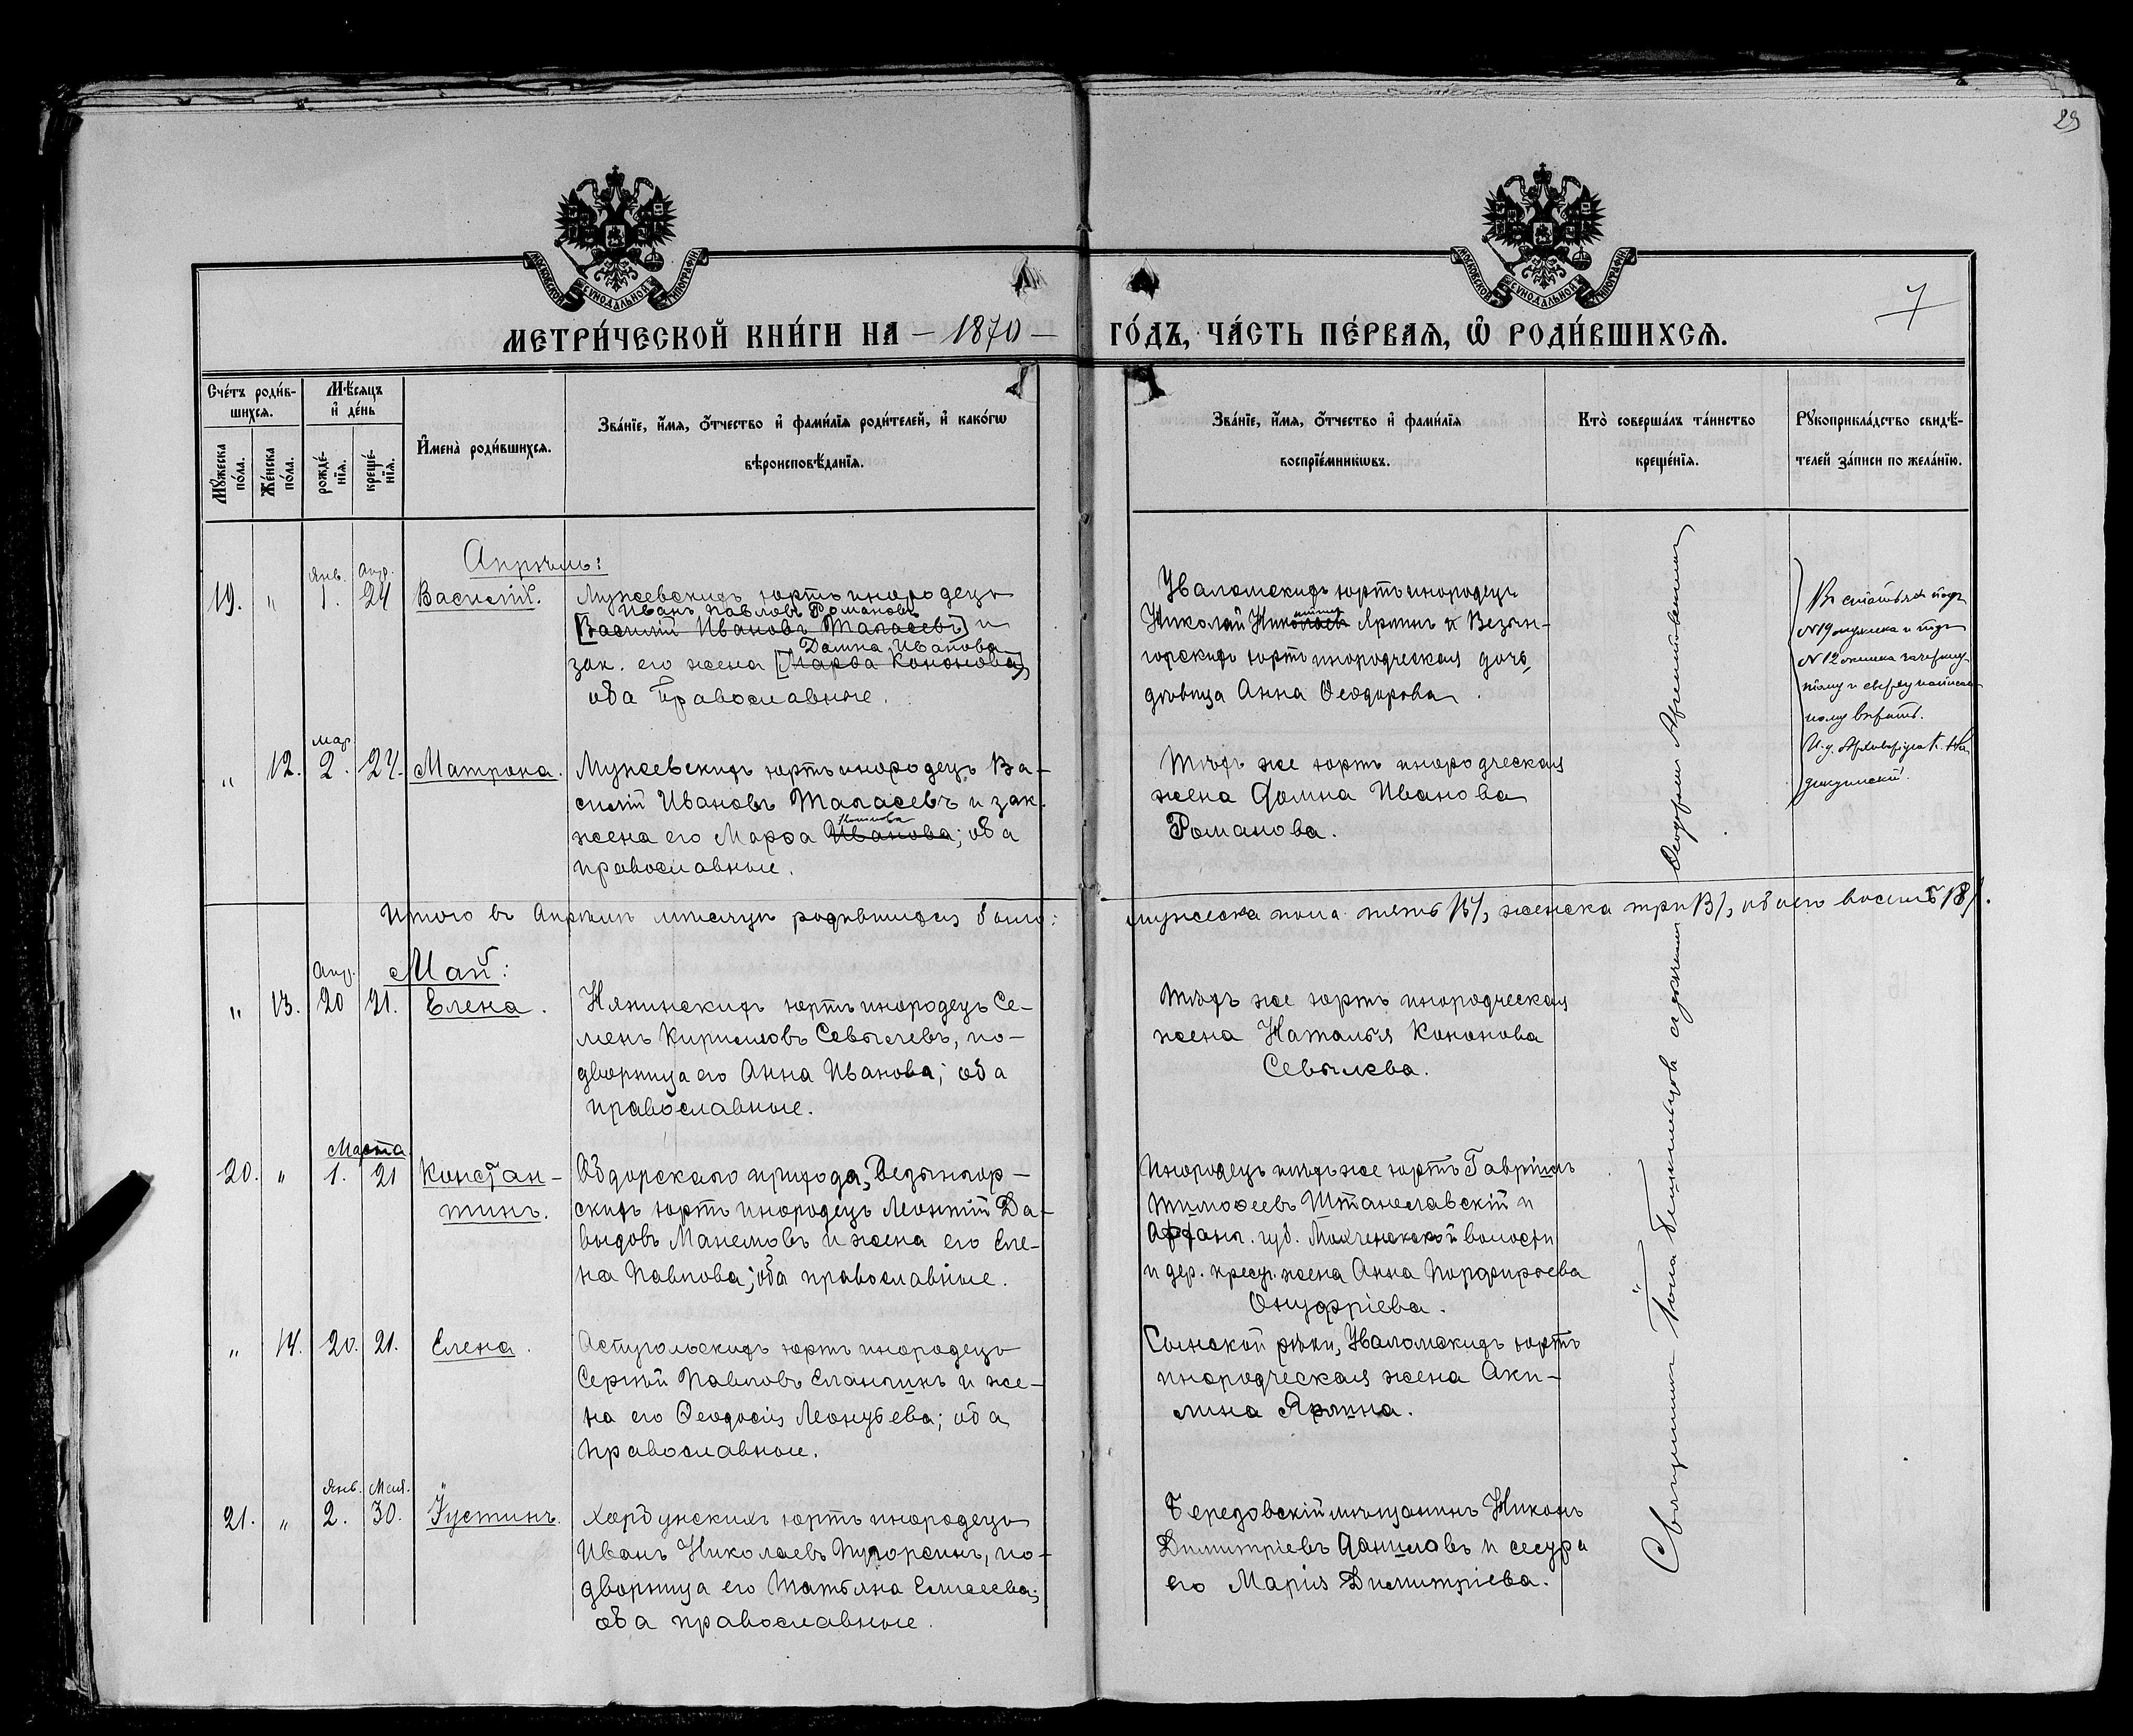 29
МОСКОВСКОЙ СѴНОДАЛЬНОЙ ТИПОГРАФІИ
МОСКОВСКОЙ СѴНОДАЛЬНОЙ ТИПОГРАФІИ
7
МЕТРИ́ЧЕСКОЙ КНИ́ГИ НА – 1870 – ГО́ДЪ, ЧА́СТЬ ПЕ́РВАЯ, Ѡ҆ РОДИ́ВШИХСЯ.
Сче́тъ роди́в-
шихся.
Мѣ́сяцъ
и҆ де́нь
Мꙋ́жеска по́ла.
Же́нска по́ла.
рожде́-
нїя.
креще́-
нїя.
И҆мена̀ роди́вшихся.
Зва́нїе, и҆́мя, ѻ҆́тчество и҆ фами́лїя роди́телей, и҆ како́гѡ
вѣроисповѣ́данїя.
Зва́нїе, и҆́мя, ѻ҆́тчество и҆ фами́лїя
воспрїе́мникѡвъ.
Кто̀ соверша́лъ та́инство
креще́нїя.
Рꙋкоприкла́дство свидѣ́-
телей за́писи по жела́нїю.
Апрѣль:
Янв. Апр.
19. " 1. 24 Василій. Мужевскихъ юртъ инородецъ
Иванъ Павловъ Романовъ
[Василій Ивановъ Таласевъ] и
Домна Иванова
зак. его жена [Марѳа Кононова]
оба Православные.
Уваломскихъ юртъ инородецъ
Николай Николаевъ Яркинъ и Везын-
горскихъ юртъ инородческая дочь,
дѣвица Анна Ѳеодорова.
Въ статьяхъ подъ
№ 19 мужеска и подъ
№ 12 женска зачеркну-
тому и сверху написан-
ному вѣрить.
Мар.
" 12. 2. 24. Матрона. Мужевскихъ юртъ инородецъ Ва-
силій Ивановъ Таласевъ и зак.
жена его Марѳа Иванова; оба
православные.
Тѣхъ же юртъ инородческая
жена Домна Иванова
Романова.
Итого въ Апрѣлѣ мѣсяцѣ родившихся было: мужеска пола пять /5/, женска три /3/, обоего восемь /8/.
Май:
Апр.
" 13. 20 21. Елена. Нянинскихъ юртъ инородецъ Се-
менъ Кирилловъ Севылевъ, по-
дворница его Анна Иванова; оба
православные.
Тѣхъ же юртъ инородческая
жена Наталья Кононова
Севылева.
Марта
20. " 1. 21 Констан-
тинъ.
Обдорскаго прихода, Везынгор-
скихъ юртъ инородецъ Леонтій Да-
выдовъ Манемовъ и жена его Еле-
на Павлова; оба православные.
Инородецъ тѣхъ же юртъ Гавріилъ
Тимоѳеевъ Штанеславскій и
губ. волости
и дер. крест. жена Анна Порфирьева
Онуфріева.
" 14. 20. 21. Елена. юртъ инородецъ
Сергѣй Павловъ и же-
на его Ѳеодосія Леонтьева; оба
православные.
Сынской рѣки, Уваломскихъ юртъ
инородческая жена Аки-
лина Яркина.
Янв. Мая.
21. " 2. 30. Іустинъ. юртъ инородецъ
Иванъ Николаевъ по-
дворница его Татьяна Елисеева;
оба православные.
Березовскій мѣщанинъ Никонъ
Димитріевъ Даниловъ и сестра
его Марія Димитріева.
Священникъ